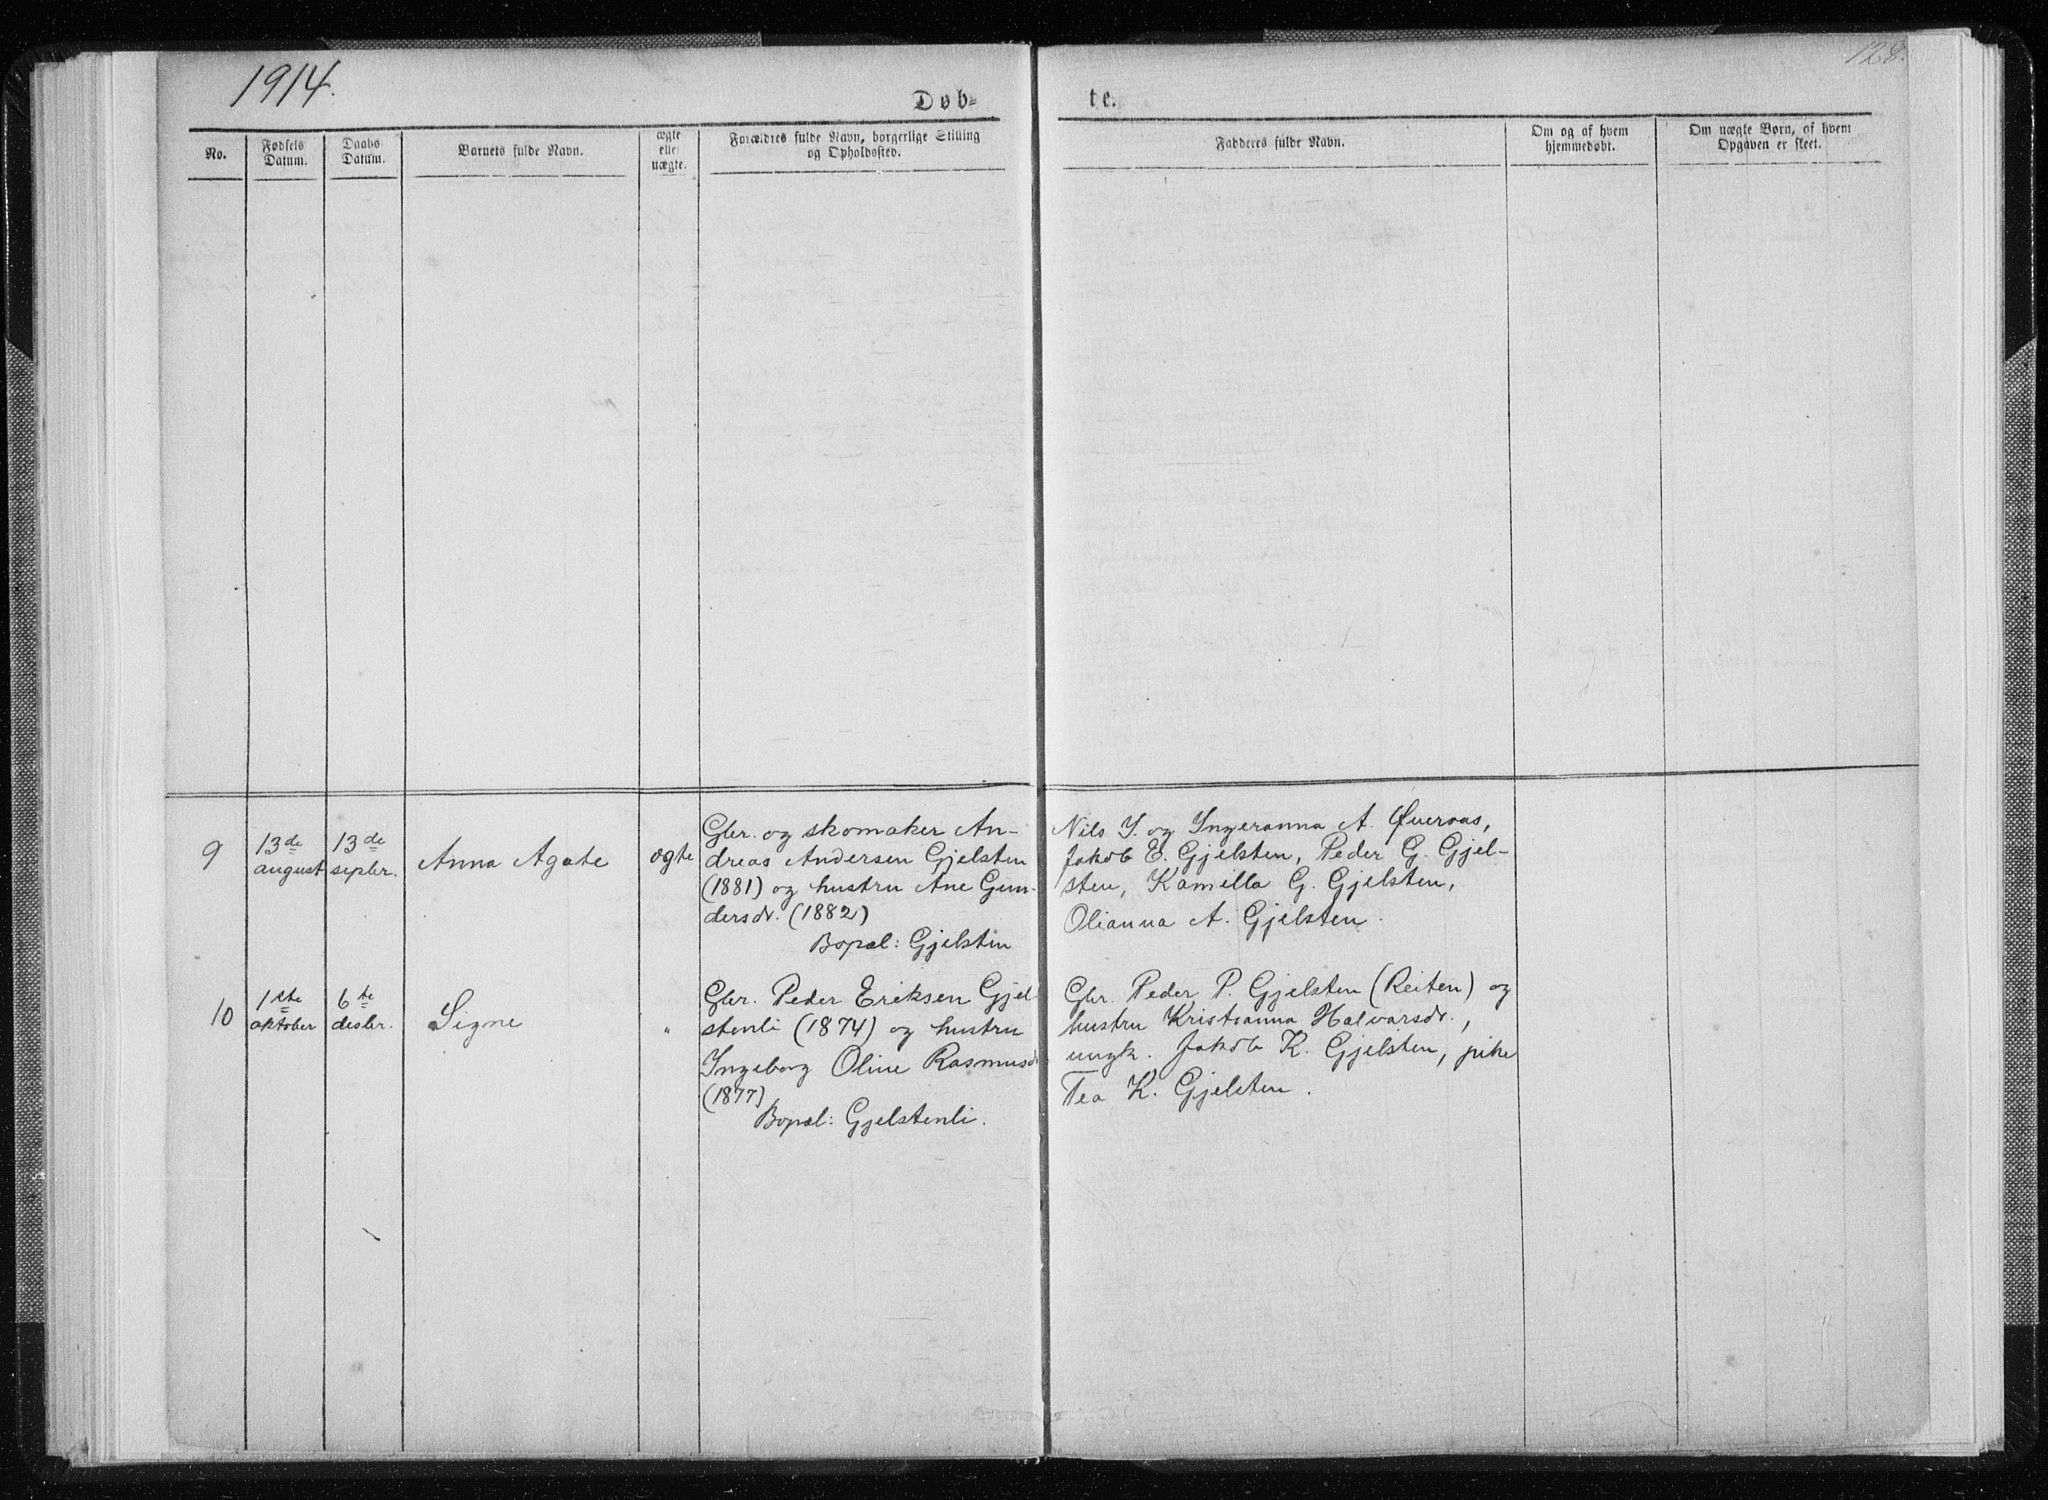 1914.
128.
Døb-
te.
No.
Fødsels
Datum.
Daabs
Datum.
Barnets fulde Navn.
ægte
eller
uægte.
Forældres fulde Navn, borgerlige Stilling
og Opholdssted.
Faddernes fulde Navn.
Om og af hvem
hjemmedøbt.
Om uægte Børn, af hvem
Opgaven er skeet.
9
13de
august
13de
septbr.
Anna Agate
ægte
Gbr. og skomaker An-
dreas Andersen Gjelsten
(1881) og hustru Ane Gun-
dersdr. (1882)
Bopæl: Gjelsten
Nils J. og Ingeranna A. Øveraas,
Jakob E. Gjelsten, Peder G. Gjel-
sten, Kamilla G. Gjelsten,
Olianna A. Gjelsten.
10
1ste
oktober
6te
desbr.
Signe
"
Gbr. Peder Eriksen Gjel-
stenli (1874) og hustru
Ingeborg Oline Rasmusdr
(1877)
Bopæl: Gjelstenli.
Gbr. Peder P. Gjelsten (Reiten) og
hustru Kristianna Halvarsdr.,
ungk. Jakob K. Gjelsten, pike
Tea K. Gjelsten.